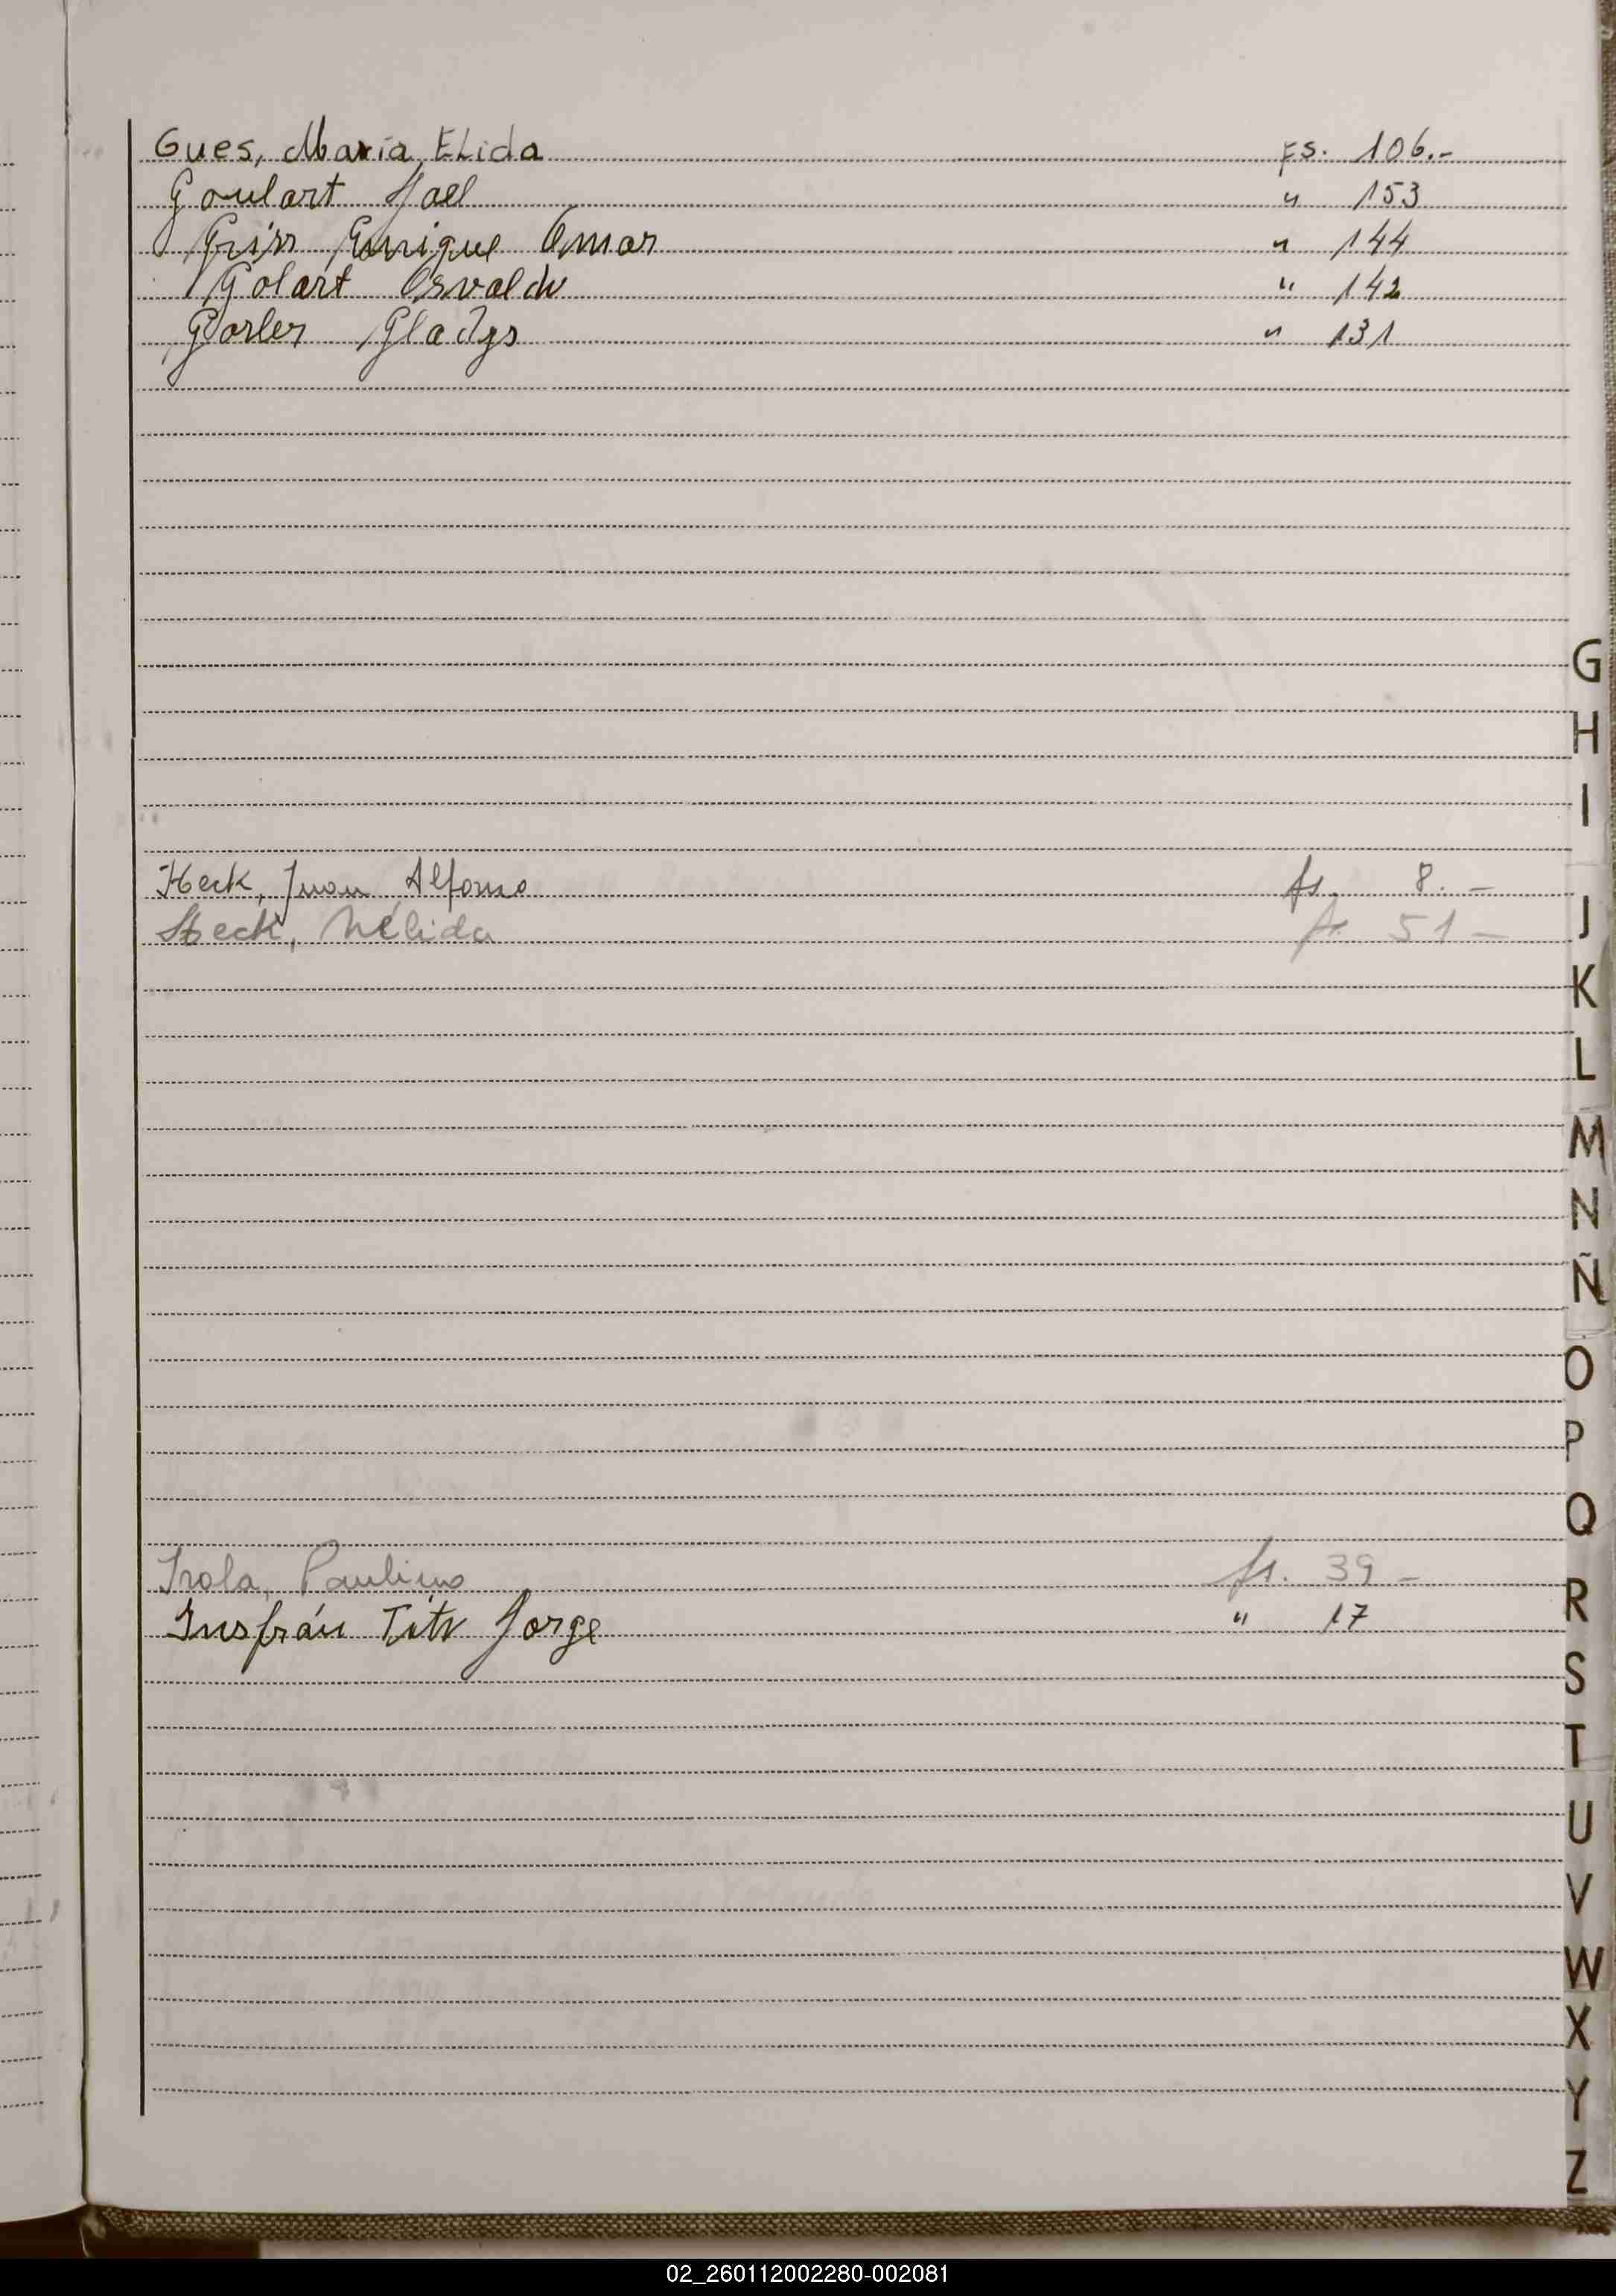 Gues, María, ELida FS. 106.-
Goulart Jael " 153
Enrique Omar " 144
Golart Osvaldo " 142
Gorler Gladys " 131
Heck, Juan Alfonso fs. 8.-
Heck, Nélida fs. 51-
Irola, Paulino fs. 39-
Insfrán Tito Jorge " 17
G
H
I
J
K
L
M
N
Ñ
O
P
Q
R
S
T
U
V
W
X
Y
Z
02_260112002280-002081